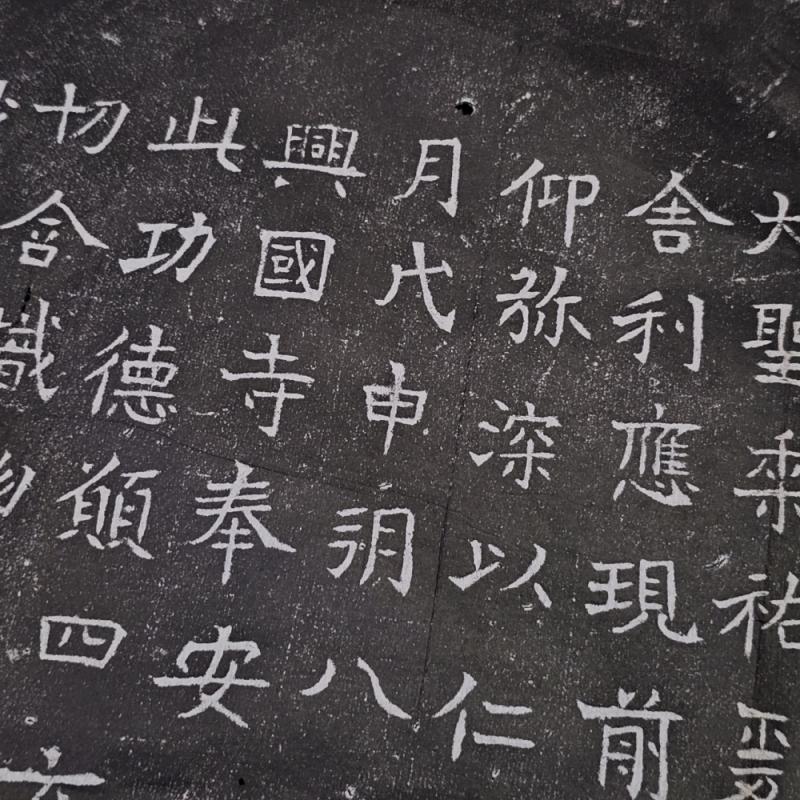 大聖垂祐
舍利應現前
仰弥深以仁
月戊申朔八
興國寺奉安
此功德願四
切含識